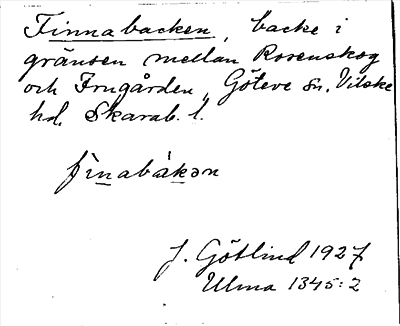 Finnabacken, backe i
gränsen mellan Rosenskog
och Frugården, Göteve sn, Vilske
hd. Skarab. l.
fìnabákən
J. Götlind 1927
Ulma 1345:2